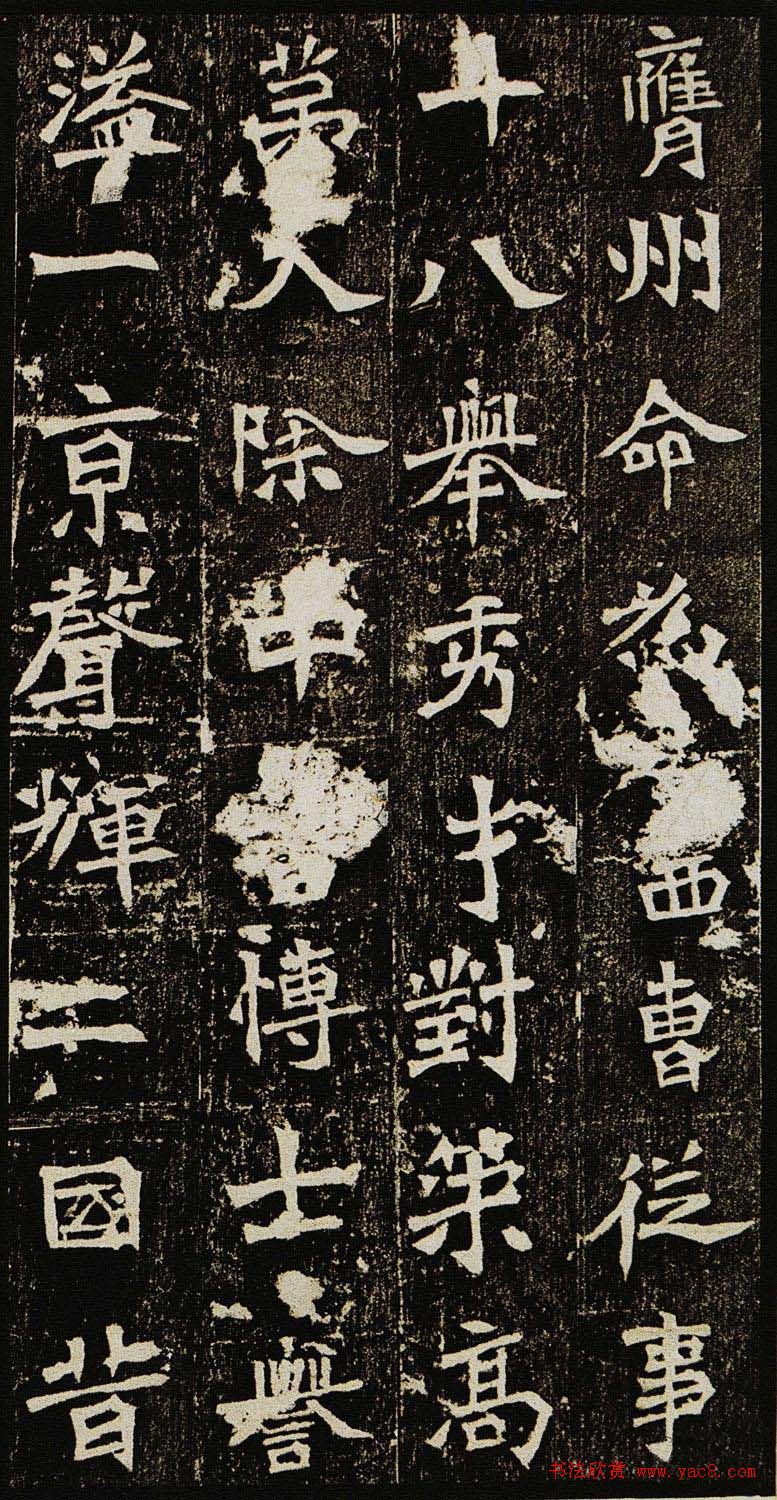 膺州命為西曹從事
十八舉秀才對策高
第入除中書博士譽
溢一京聲輝二國昔
书法欣赏 www.yac8.com